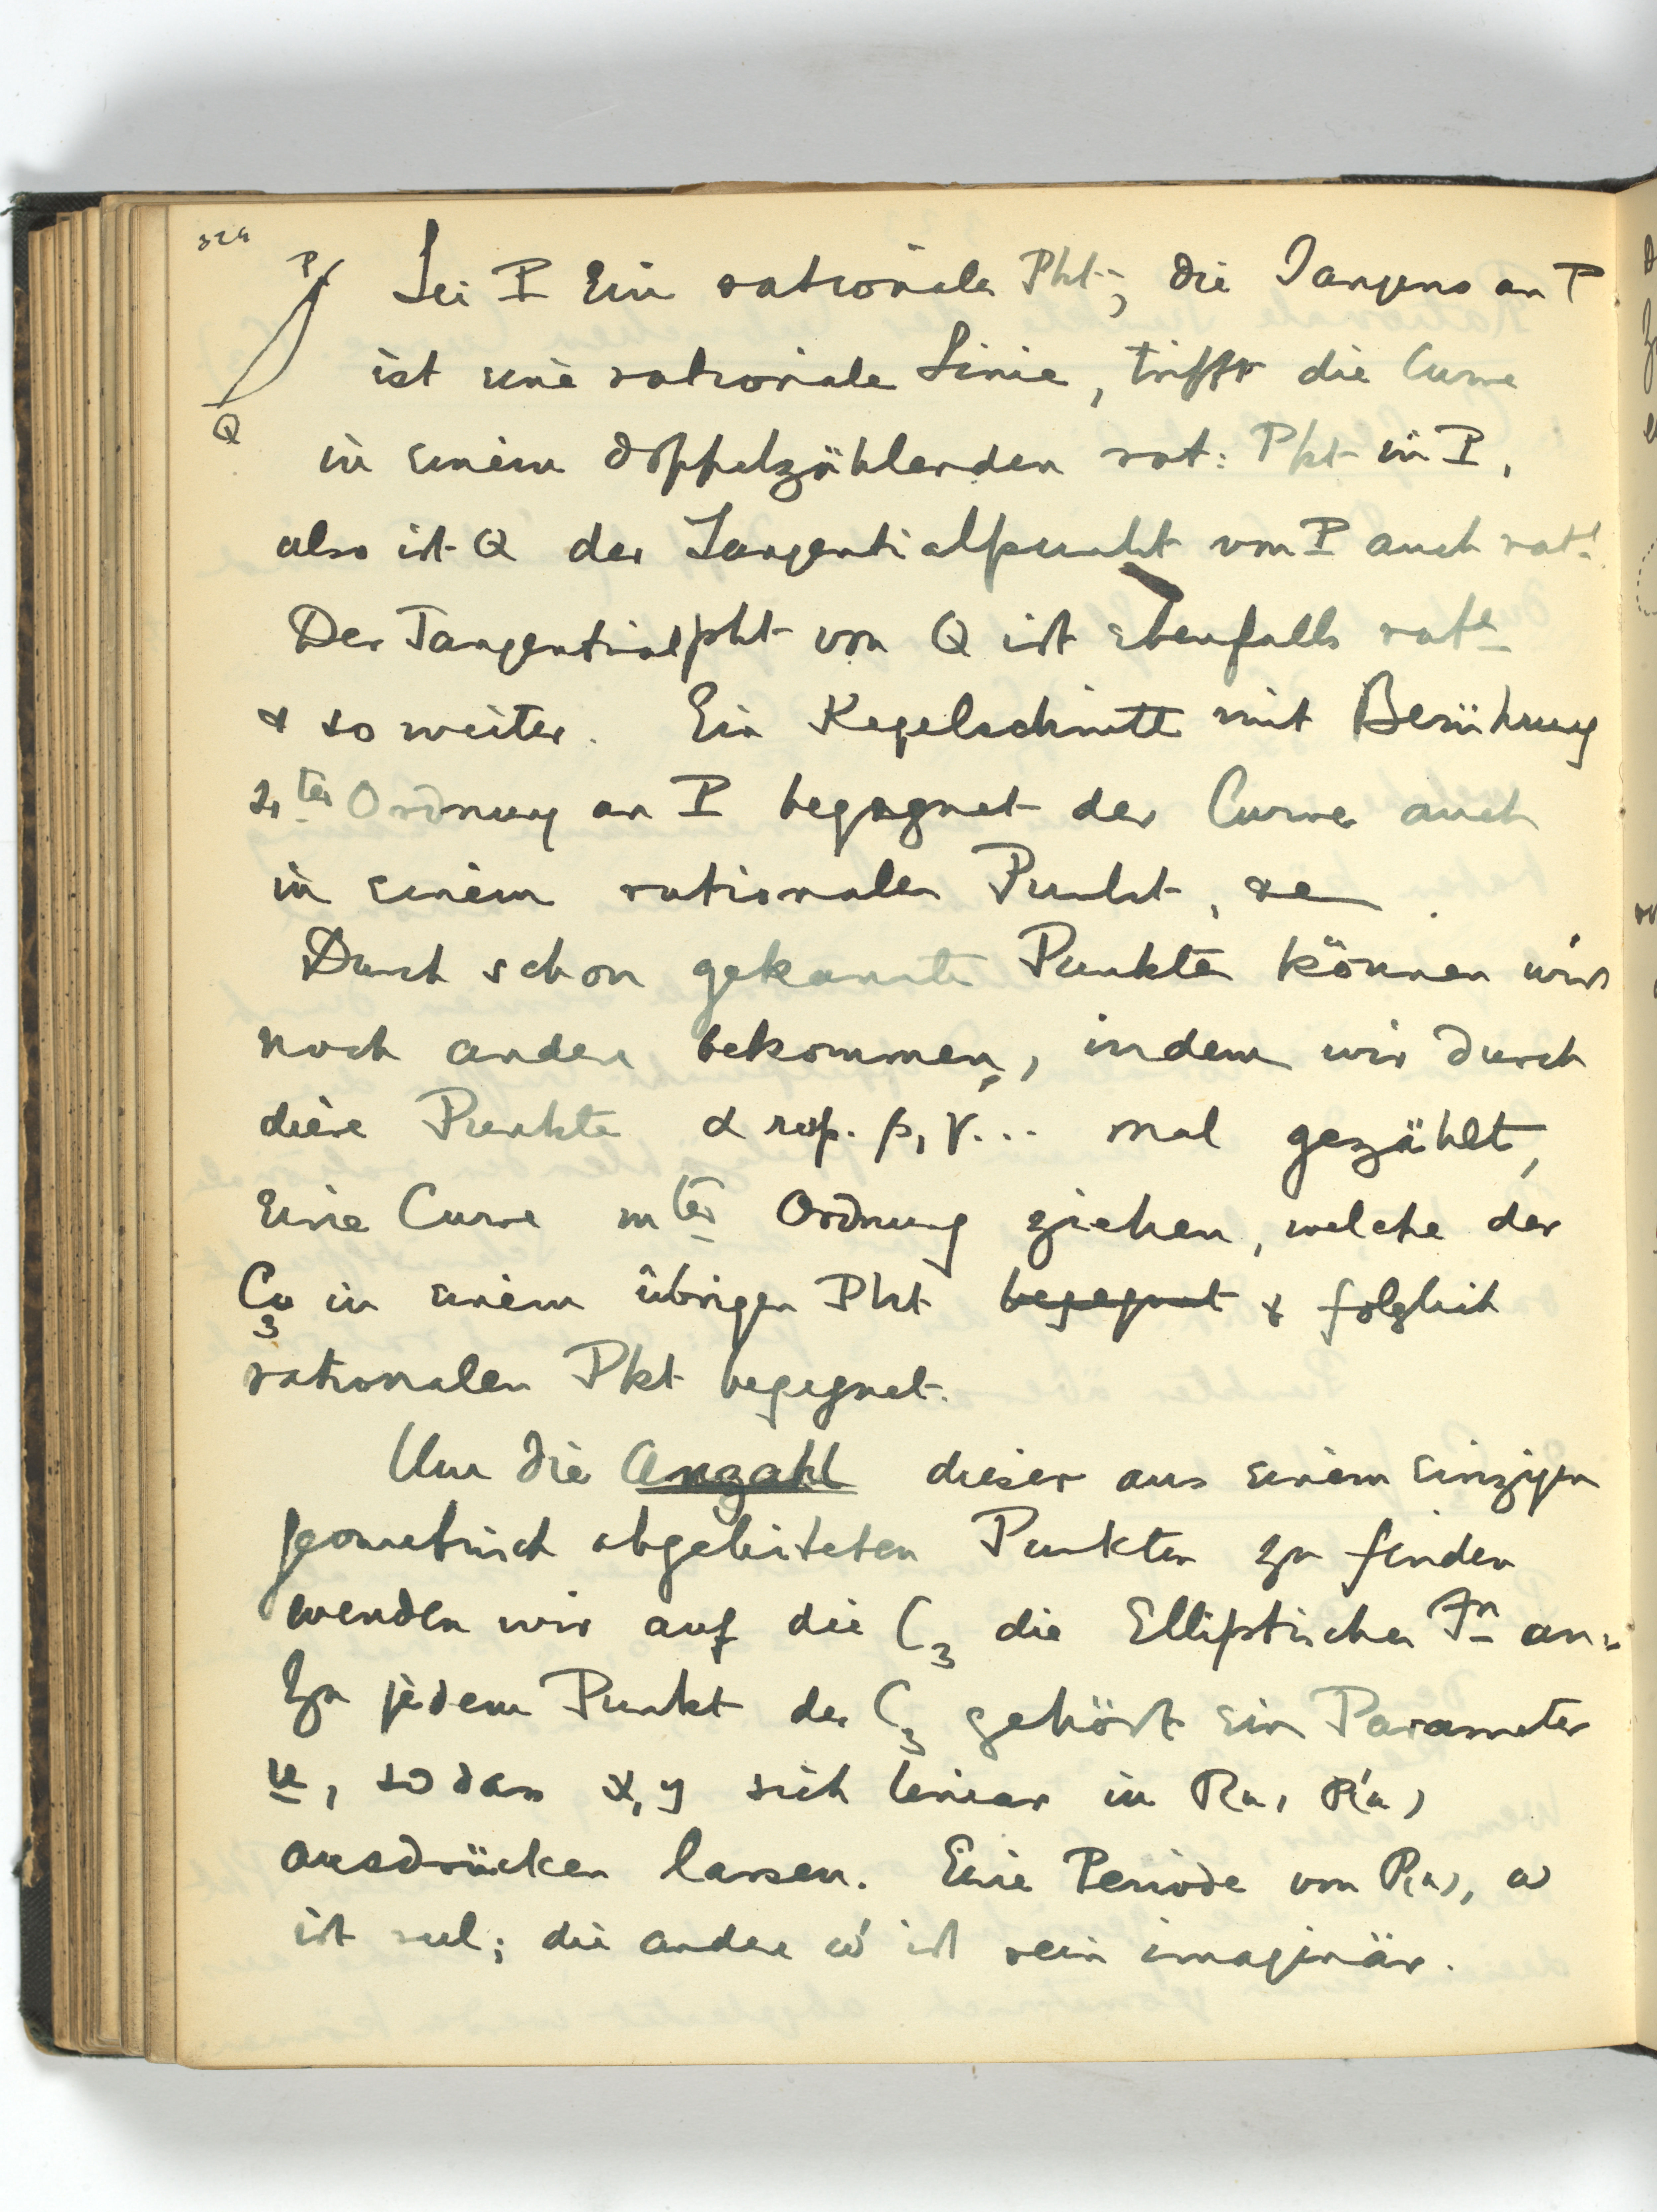 324
P Sei P Ein rationaler Pkt, die Tangens an P
ist eine rationale Linie, trifft die Curve
Q
in einem doppelzählenden rat: Pkt in P,
also ist Q der Tangentialpunkt von P auch rat!
Der Tangentialpkt von Q ist ebenfalls rat^e
& so weiter. Ein Kegelschnitt mit Berührung
4ter Ordnung an P begegnet der Curve auch
in einem rationalen Punkt, &c
Durch schon gekannte Punkte können wir
noch andere bekommen, indem wir durch
diese Punkte α resp. β, γ... mal gezählt,
eine Curve mter Ordnung ziehen, welche der
C3 in einem übrigen Pkt begegnet & folglich
rationalen Pkt begegnet.
Um die Anzahl dieser aus einem einzigen
geometrisch abgeleiteten Punkten zu finden
wenden wir auf die C3 die Elliptischen Fn an.
Zu jedem Punkt der C3 gehört ein Parameter
u, so dass x, y sich linear in Pu, P'u,
ausdrücken lassen. Eine Periode von P(u), ω
ist reel; die andere ω' ist rein imaginär.